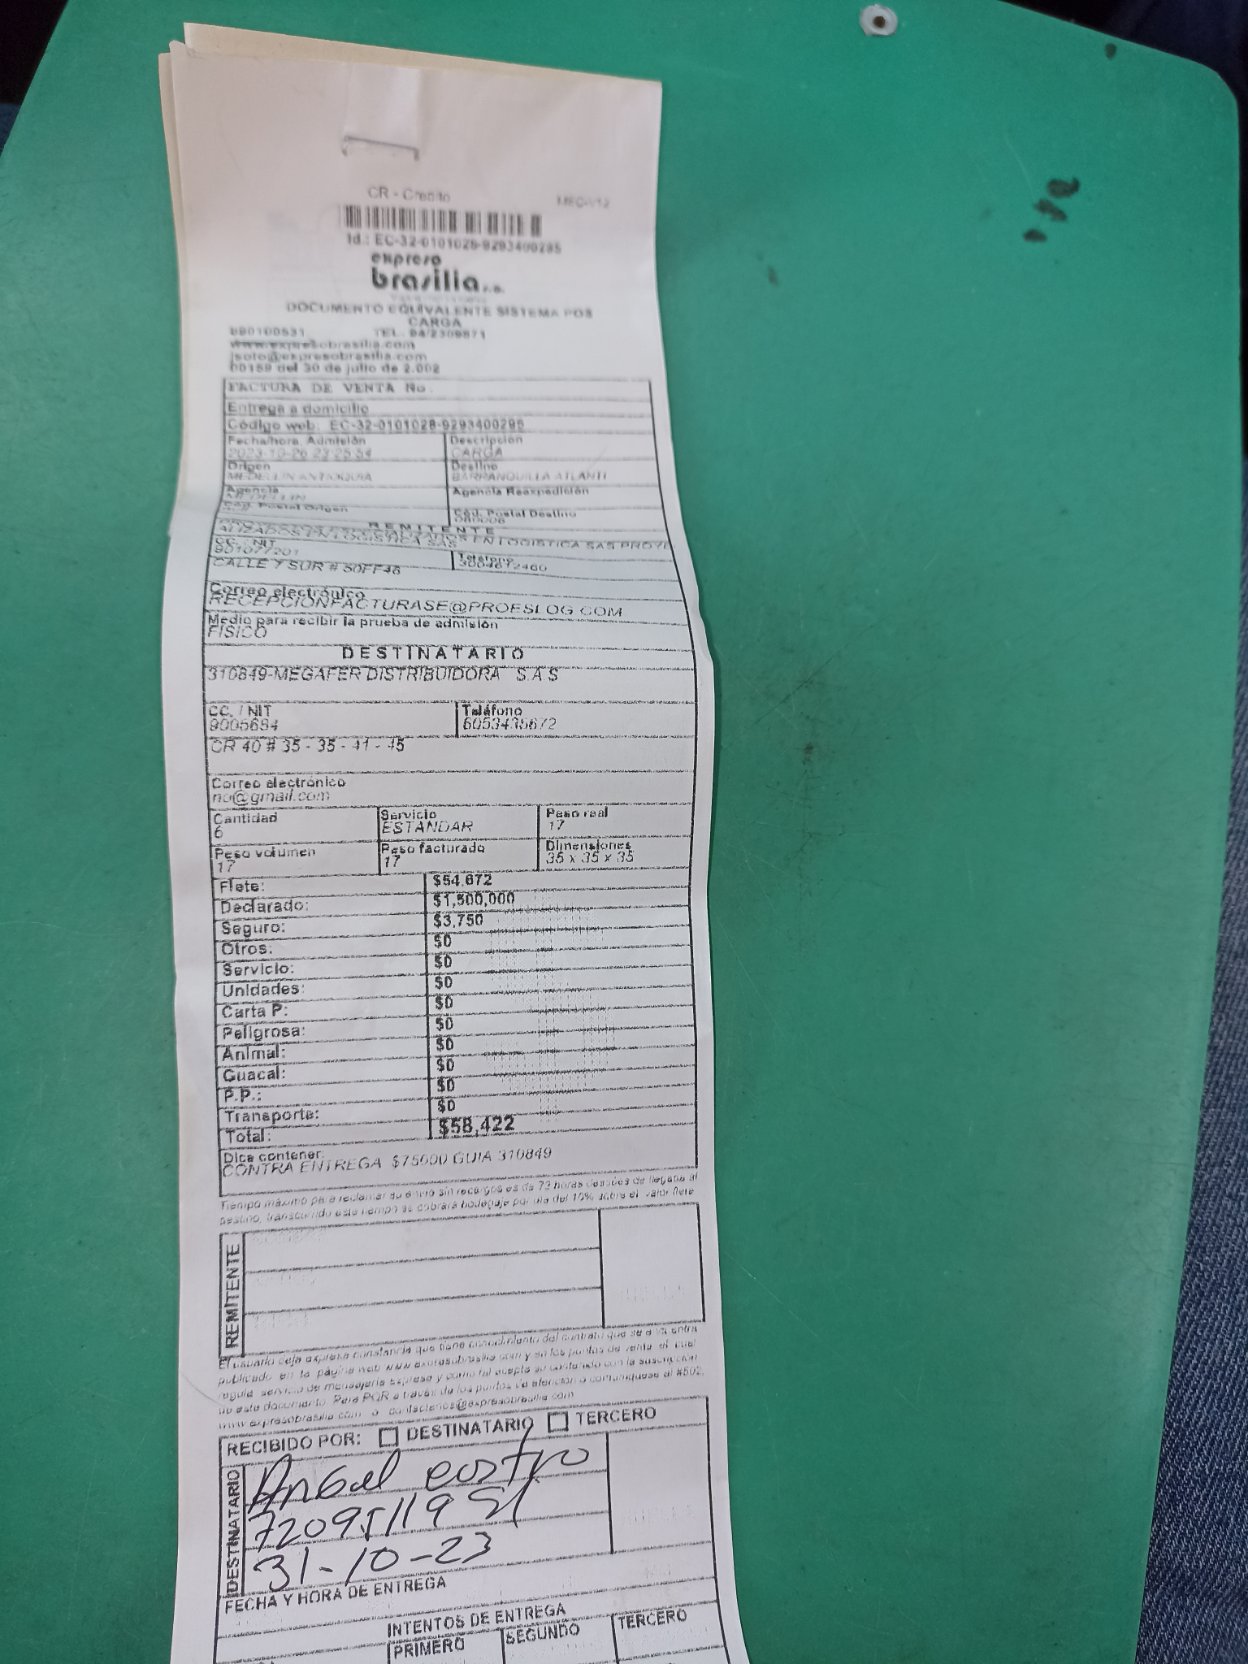 CR - Credito
Id.: EC-32-0101028-9293400295
expreso
brasilia s.a.
DOCUMENTO EQUIVALENTE SISTEMA POS
CARGA
890100531 TEL.
www.expresobrasilia.com
jsoto@expresobrasilia.com
00159 del 30 de julio de 2.002
FACTURA DE VENTA No.
Entrega a domicilio
Código web: EC-32-0101028-9293400295
Fecha/hora. Admisión Descripcion
2023-10-26 23:25:54 CARGA
Origen Destino
MEDELLIN ANTIOQUIA BARRANQUILLA ATLANTI
Agencia Agencia Reexpedición
MEDELLIN
Cód. Postal Origen Cód. Postal Destino
080006
REMITENTE
ALIZADOS EN LOGISTICA SAS EN LOGISTICA SAS PROYE
CC. / NIT Teléfono
901077201 3004672460
CALLE 7 SUR # 50FF48
Correo electrónico
RECEPCIONFACTURASE@PROESLOG.COM
Medio para recibir la prueba de admisión
FISICO
DESTINATARIO
310849-MEGAFER DISTRIBUIDORA S.A.S
CC. / NIT Teléfono
9005684 6053435672
CR 40 # 35 - 35 - 41 - 45
Correo electrónico
no@gmail.com
Cantidad Servicio Peso real
6 ESTANDAR 17
Peso volumen Peso facturado Dimensiones
17 17 35 x 35 x 35
Flete: $54,672
Declarado: $1,500,000
Seguro: $3,750
Otros: $0
Servicio: $0
Unidades: $0
Carta P: $0
Peligrosa: $0
Animal: $0
Guacal: $0
P.P.: $0
Transporte: $0
Total: $58,422
Dice contener:
CONTRA ENTREGA $75000 GUIA 310849
Tiempo máximo para reclamar su envío sin recargos es de 72 horas después de llegada al
destino, transcurrido este tiempo se cobrará bodegaje por día del 10% sobre el valor flete
REMITENTE
El usuario deja expresa constancia que tiene conocimiento del contrato que se encuentra
publicado en la página web www.expresobrasilia.com y en los puntos de venta el cual
regula servicio de mensajería expresa y como tal acepta su contenido con la suscripción
de este documento. Para PQR a través de los puntos de atención o comuníquese al #502.
www.expresobrasilia.com o contactenos@expresobrasilia.com
RECIBIDO POR: DESTINATARIO TERCERO
DESTINATARIO
Angel castro
72095119
31-10-23
FECHA Y HORA DE ENTREGA
INTENTOS DE ENTREGA
PRIMERO SEGUNDO TERCERO